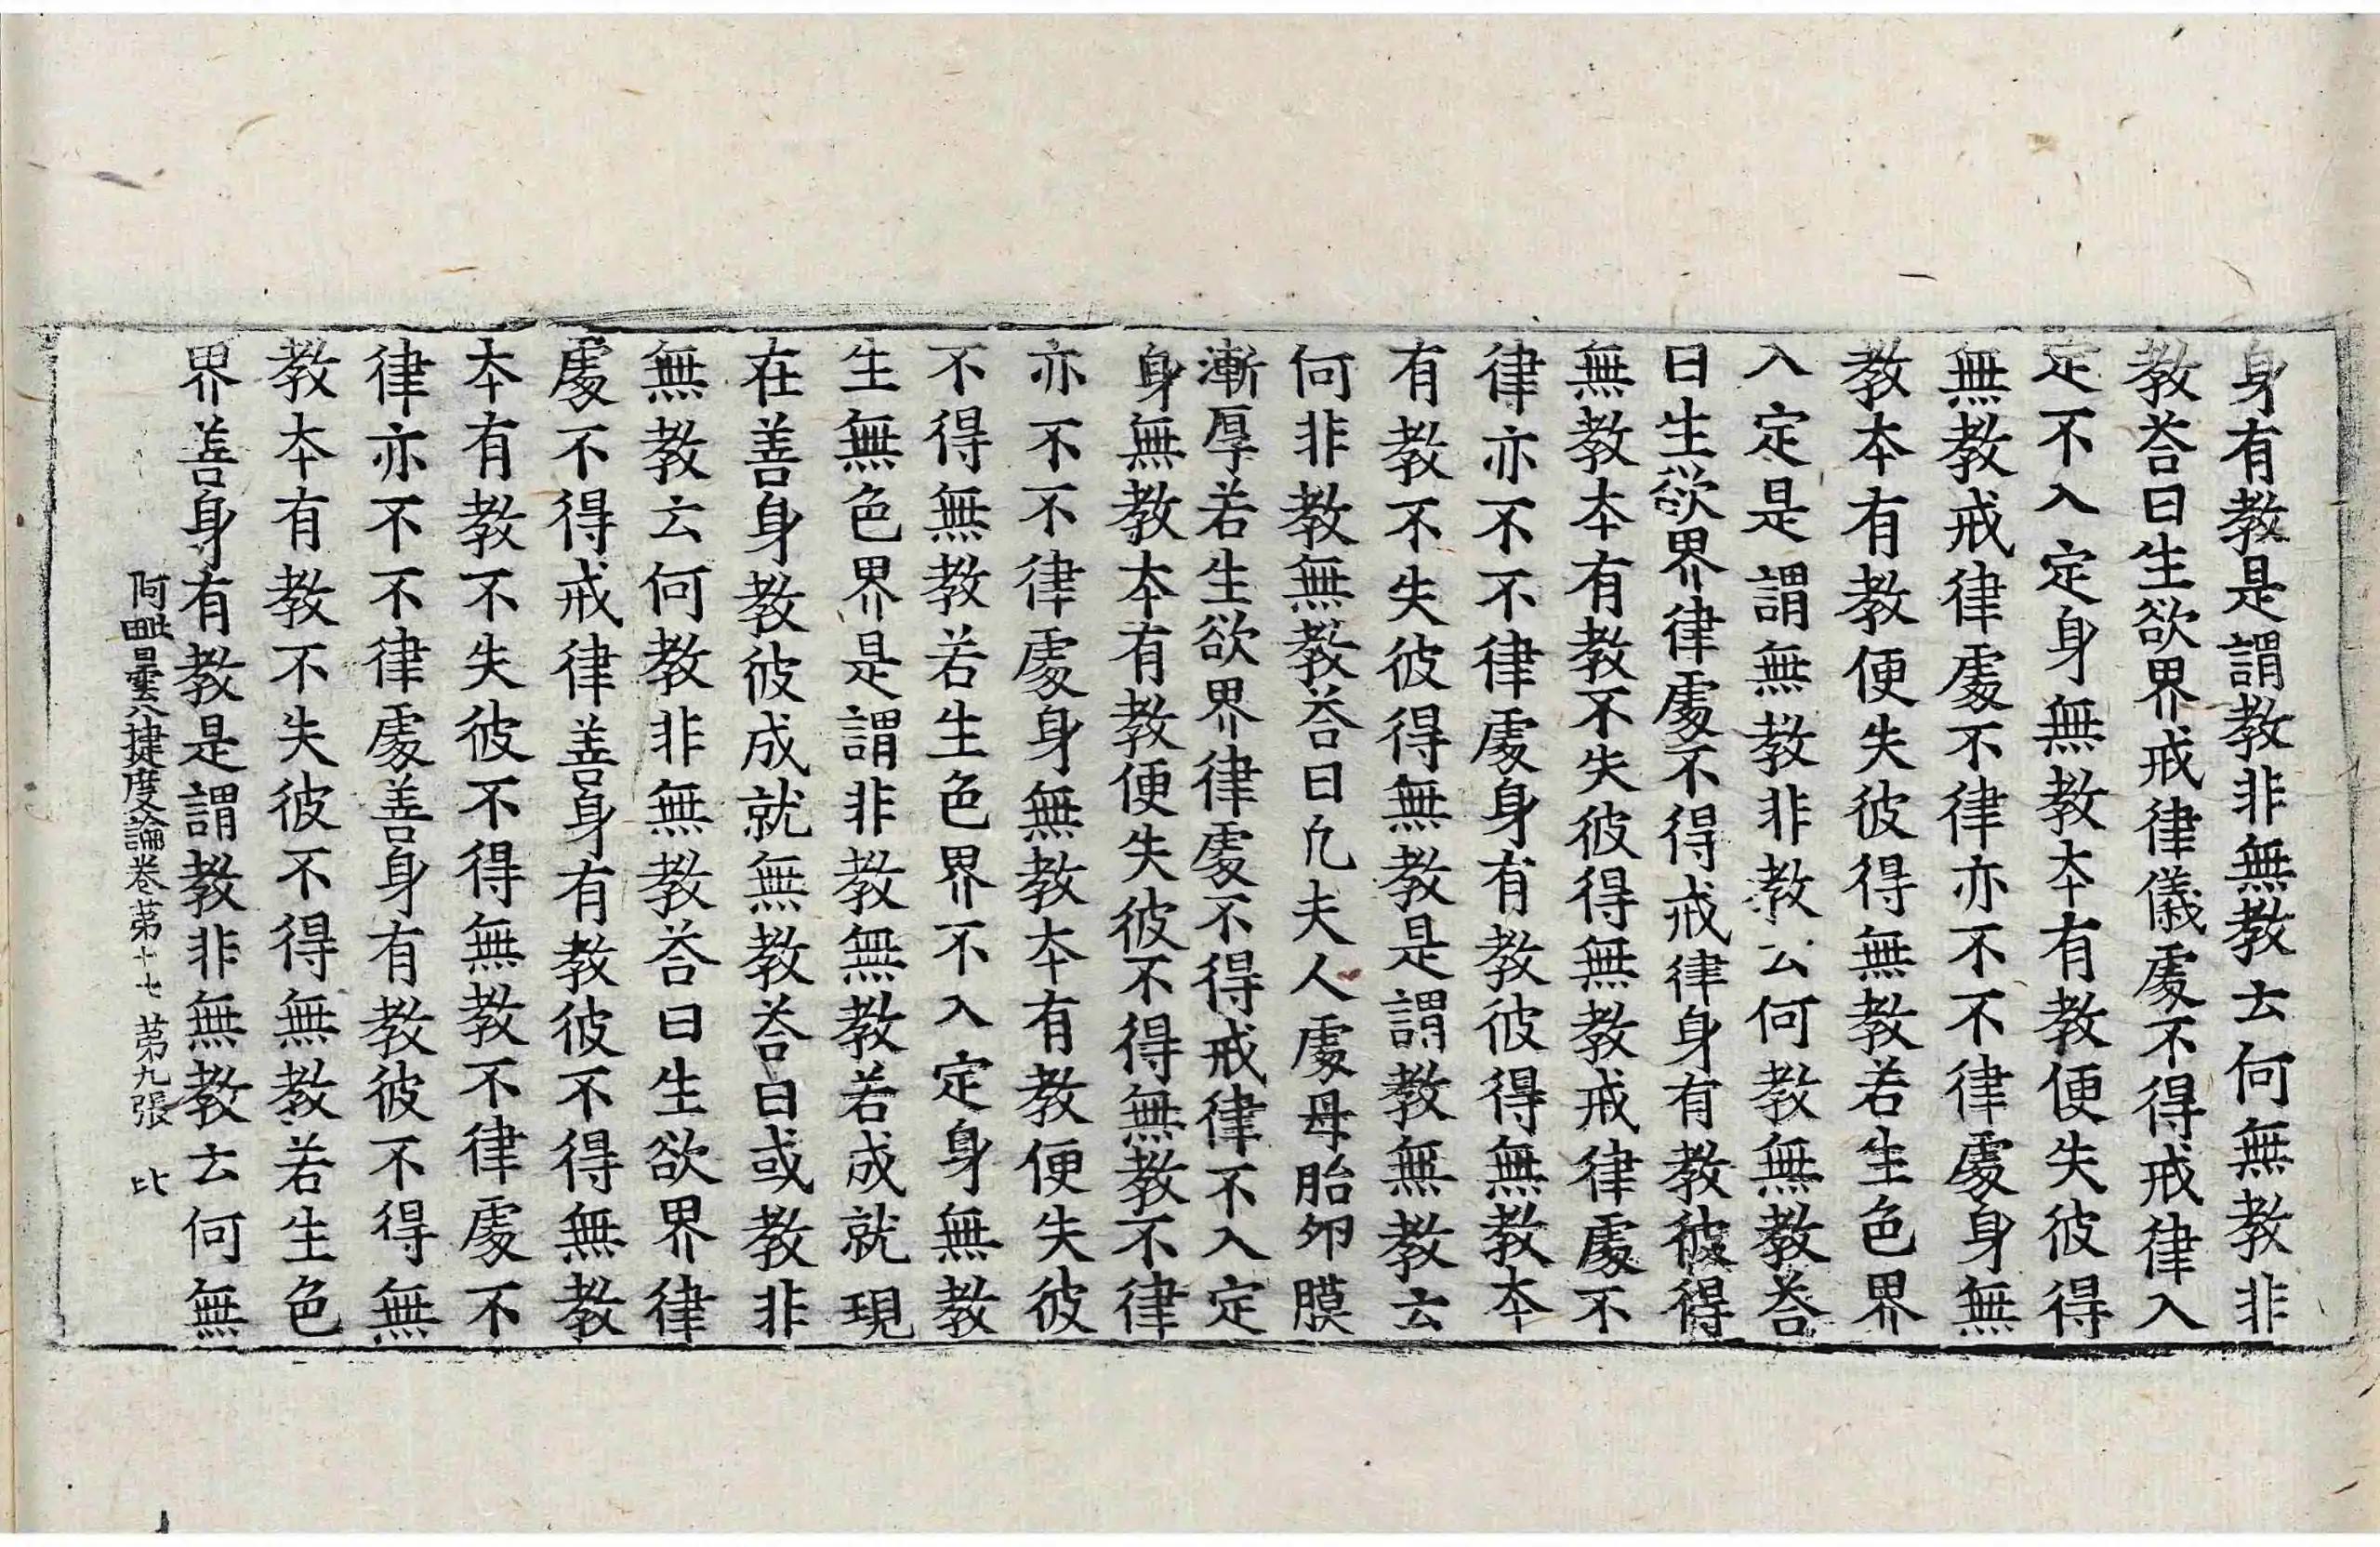 身有教是謂教非無教云何無教非
教荅曰生欲界戒律儀處不得戒律入
定不入定身無教本有教便失彼得
無教戒律處不律亦不不律處身無
教本有教便失彼得無教若生色界
入定是謂無教非教云何教無教荅
曰生欲界律處不得戒律身有教彼得
無教本有教不失彼得無教戒律處不
律亦不不律處身有教彼得無教本
有教不失彼得無教是謂教無教云
何非教無教荅曰凢夫人處母胎夘膜
漸厚若生欲界律處不得戒律不入定
身無教本有教便失彼不得無教不律
亦不不律處身無教本有教便失彼
不得無教若生色界不入定身無教
生無色界是謂非教無教若成就現
在善身教彼成就無教荅曰或教非
無教云何教非無教荅曰生欲界律
處不得戒律善身有教彼不得無教
本有教不失彼不得無教不律處不
律亦不不律處善身有教彼不得無
教本有教不失彼不得無教若生色
界善身有教是謂教非無教云何無
阿毗曇八揵度論卷第十七 第九張 比